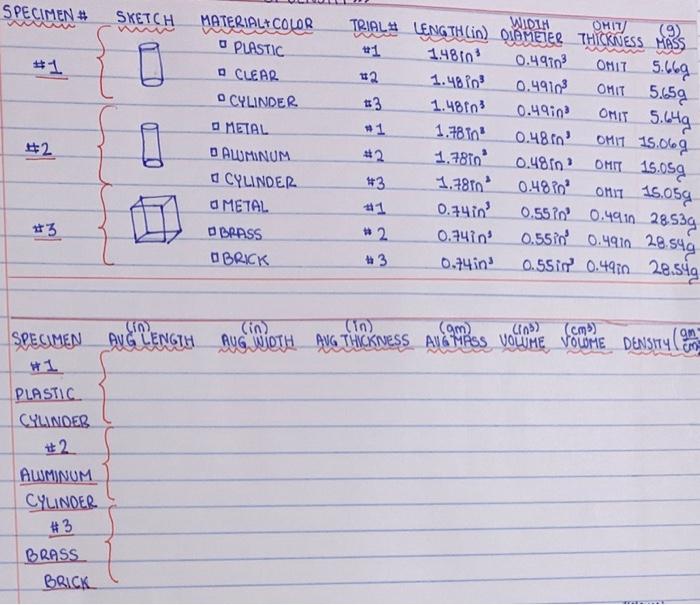 SPECIMEN # SKETCH MATERIAL+COLOR TRIAL# LENGTH(in) WIDTH DIAMETER OMIT/ THICKNESS (g) MASS
#1 □ PLASTIC #1 1.48in³ 0.49in³ OMIT 5.66g
□ CLEAR #2 1.48in³ 0.49in³ OMIT 5.65g
□ CYLINDER #3 1.48in³ 0.49in³ OMIT 5.64g
#2 □ METAL #1 1.78in³ 0.48in³ OMIT 15.06g
□ ALUMINUM #2 1.78in³ 0.48in³ OMIT 15.05g
□ CYLINDER #3 1.78in³ 0.48in³ OMIT 15.05g
#3 □ METAL #1 0.74in³ 0.55in³ 0.49in 28.53g
□ BRASS #2 0.74in³ 0.55in³ 0.49in 28.54g
□ BRICK #3 0.74in³ 0.55in³ 0.49in 28.54g
SPECIMEN (in) AVG LENGTH (in) AVG WIDTH (in) AVG THICKNESS (gm) AVG MASS (in³) VOLUME (cm³) VOLUME DENSITY (gm/cm³
#1
PLASTIC
CYLINDER
#2
ALUMINUM
CYLINDER
#3
BRASS
BRICK